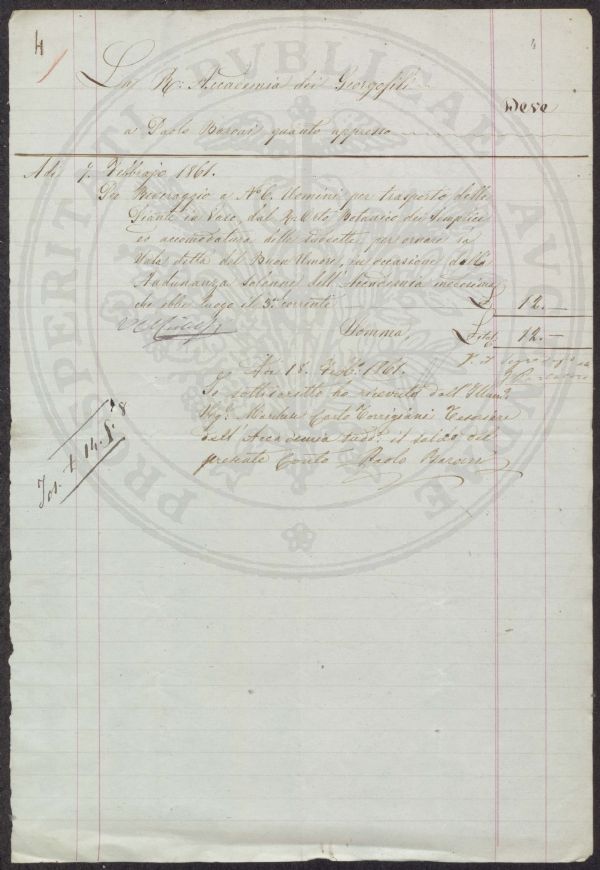 4
4
La R: Accademia dei Georgofili
Deve
a Paolo Baroni quanto appresso
Adi 7. Febbrajo 1861.
Per Beveraggio a N° 6. Uomini per trasporto delle
Piante in Vaso, dal R. Orto Botanico dei Semplici
ed accomodatura delle sudette per ornare la
Sala detta del Buon Umore, in occasione della
Adunanza Solenne dell'Accademia medesima
che ebbe luogo il 3. corrente £ 12.—
Somma, Total £ 12.—
Adi 18. Febb° 1861.
Io sottoscritto ho ricevuto dall'Illmo
Sigr. Marchese Carlo Torrigiani Tesoriere
dell'Accademia sudd. il saldo del
presente Conto Paolo Baroni
PROSPERITATI PUBLICAE AUGENDAE